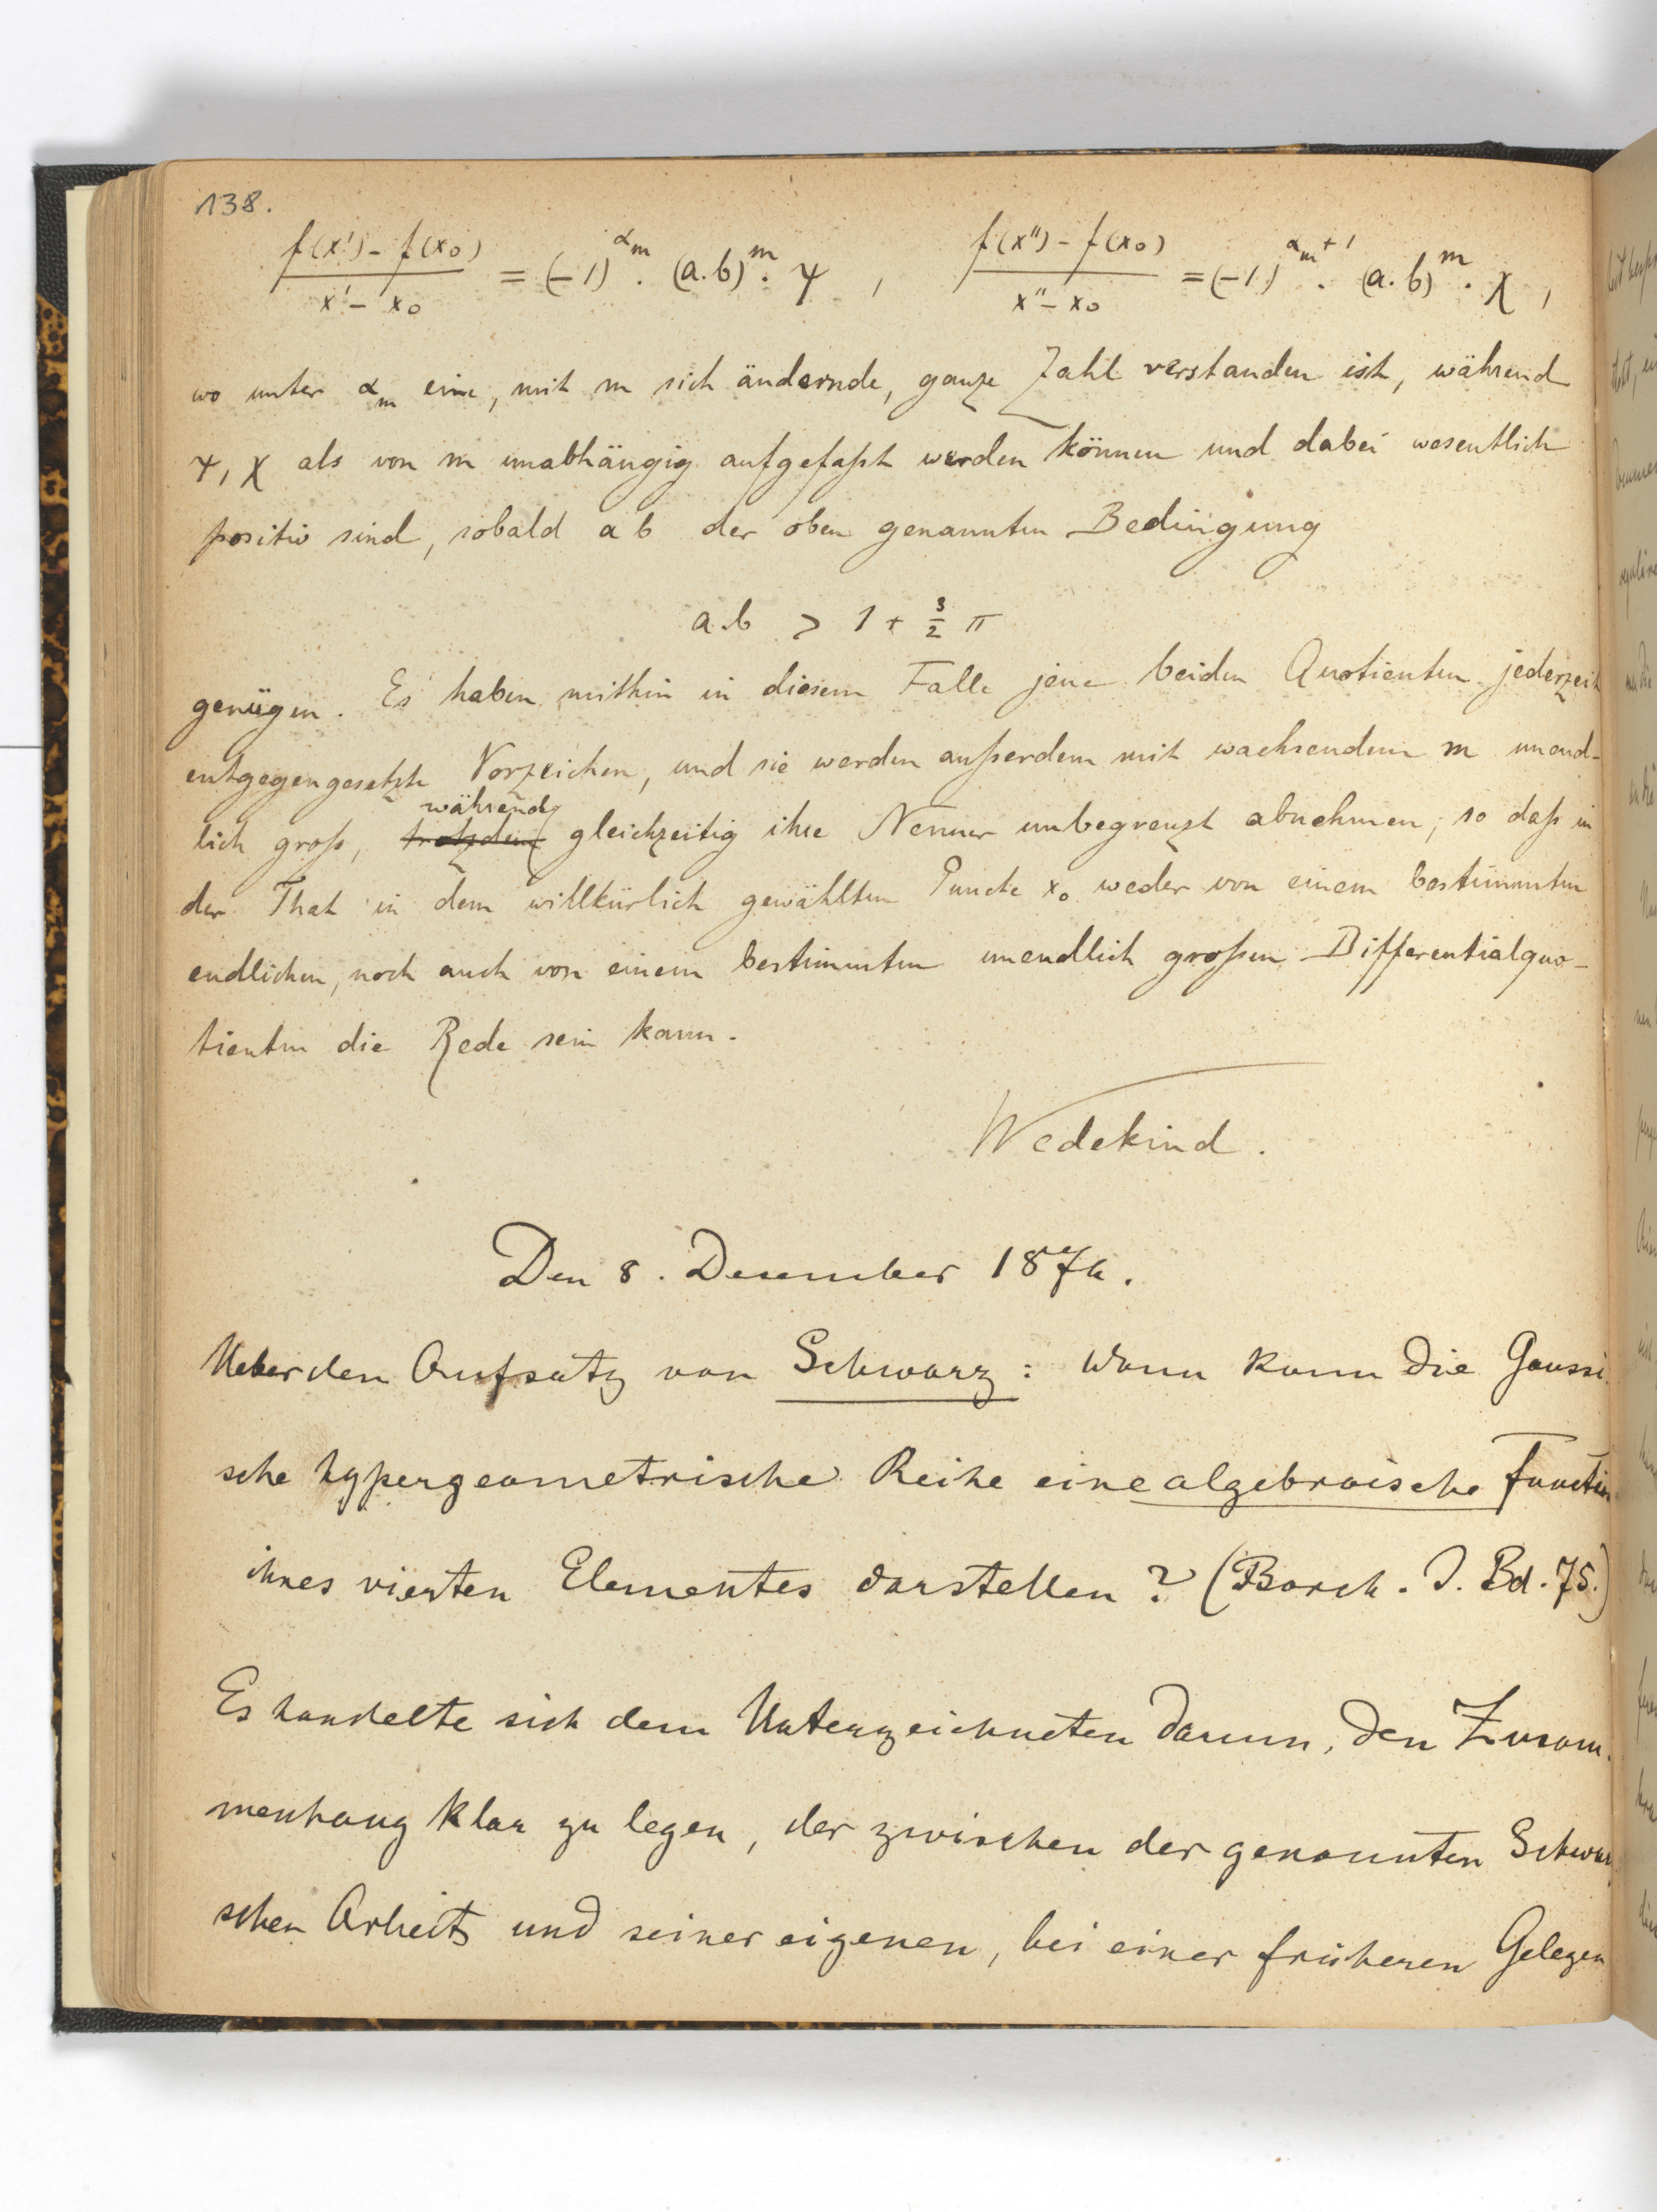 138.
f(x')-f(x₀) / x'-x₀ = (-1)^{α_m} . (a.b)^m . ψ , f(x'')-f(x₀) / x''-x₀ = (-1)^{α_m+1} . (a.b)^m . χ ,
wo unter α_m eine, mit m sich ändernde, ganze Zahl verstanden ist, während
ψ, χ als von m unabhängig aufgefaßt werden können und dabei wesentlich
positiv sind, sobald a b der oben genannten Bedingung
a.b > 1 + 3/2 π
genügen. Es haben mithin in diesem Falle jene beiden Quotienten jederzeit
entgegengesetzte Vorzeichen, und sie werden außerdem mit wachsendem m unend-
während
lich groß, trotzdem gleichzeitig ihre Nenner unbegrenzt abnehmen; so daß in
der That in dem willkürlich gewählten Puncte x₀ weder von einem bestimmten
endlichen, noch auch von einem bestimmten unendlich großen Differentialquo-
tienten die Rede sein kann.
Wedekind.
Den 8. Dezember 1874.
Ueber den Aufsatz von Schwarz: Wann kann die Gaussi-
sche hypergeometrische Reihe eine algebraische Function
ihres vierten Elementes darstellen? (Borch. J. Bd. 75.)
Es handelte sich dem Unterzeichneten darum, den Zusam-
menhang klar zu legen, der zwischen der genannten Schwarz
schen Arbeit und seiner eigenen, bei einer früheren Gelegen